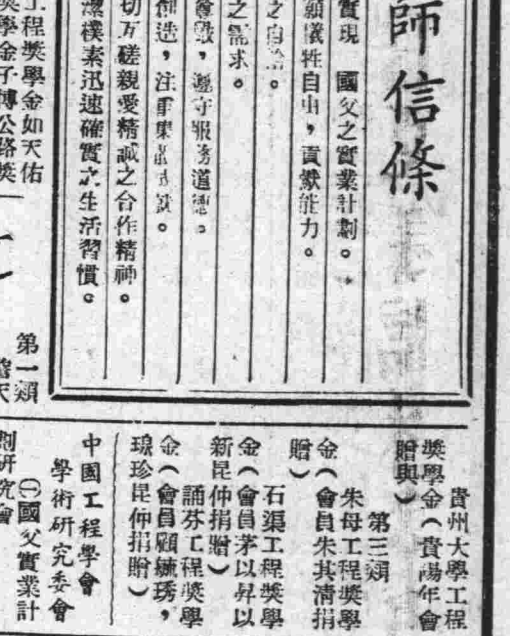 師信條
實現　國父之實業計劃。
願犧牲自由，貢獻能力。
之自給。
之需求。
譽毀，遵守服務道德。
創造，注重集體
切互磋親愛精誠之合作精神。
潔樸素迅速確實之生活習慣。
工程獎學金如天佑
獎學金子博公路獎
第一類
貴州大學工程
獎學金（貴陽年會
贈與）
第三類
朱母工程獎學
金（會員朱其清捐
贈）
石渠工程獎學
金（會員茅以昇以
新昆仲捐贈）
誦芬工程獎學
金（會員顧毓琇，
瑔珍昆仲捐贈）
中國工程學會
學術研究委會
㈠國父實業計
劃研究會